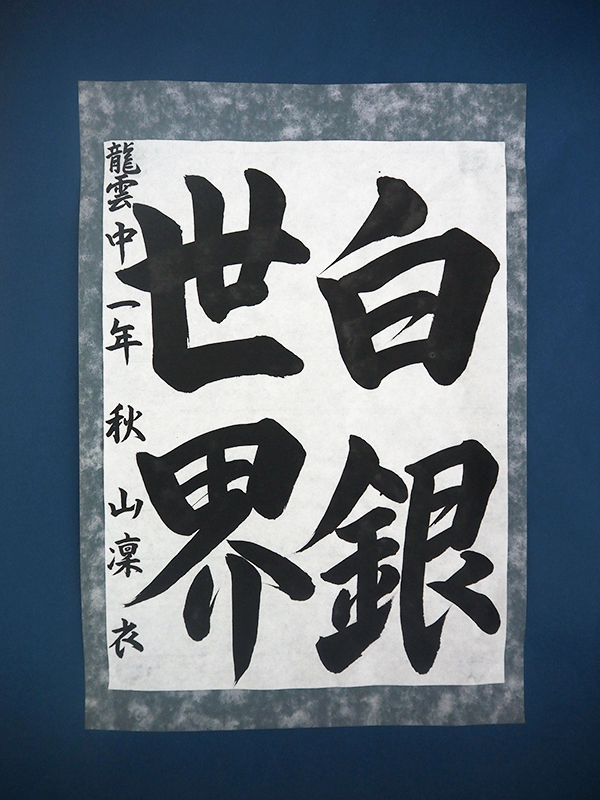 白銀
世界
龍雲中一年 秋山凜衣